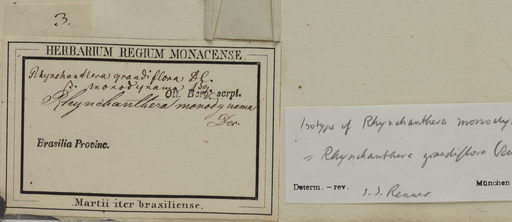 3.
HERBARIUM REGIUM MONACENSE.
Rhynchanthera grandiflora DC.
β. monodynama
Ott. Berg scrps.
Rhynchanthera monodynama
Dec.
Brasilia Provinc.
Martii iter brasiliense.
Isotype of Rhynchanthera monody
= Rhynchanthera grandiflora (Au
Determ. – rev.
S. S. Renner
München